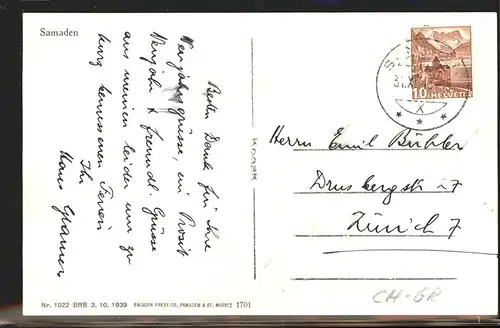 Samaden
Besten Dank für Ihre
Neujahrsgrüsse, ein Prosit
Neujahr & freundl. Grüsse
aus meinen leider nur zu
kurz bemessenen Ferien
Ihr
Hans
HELVETIA
10
31.X
X
Herrn Emil Bühler
Drusbergstr. 17
Zürich 7
KODAK
CH-GR
Nr. 1022 BRB 3. 10. 1939 ENGADIN PRESS CO., SAMADEN & ST. MORITZ 1701